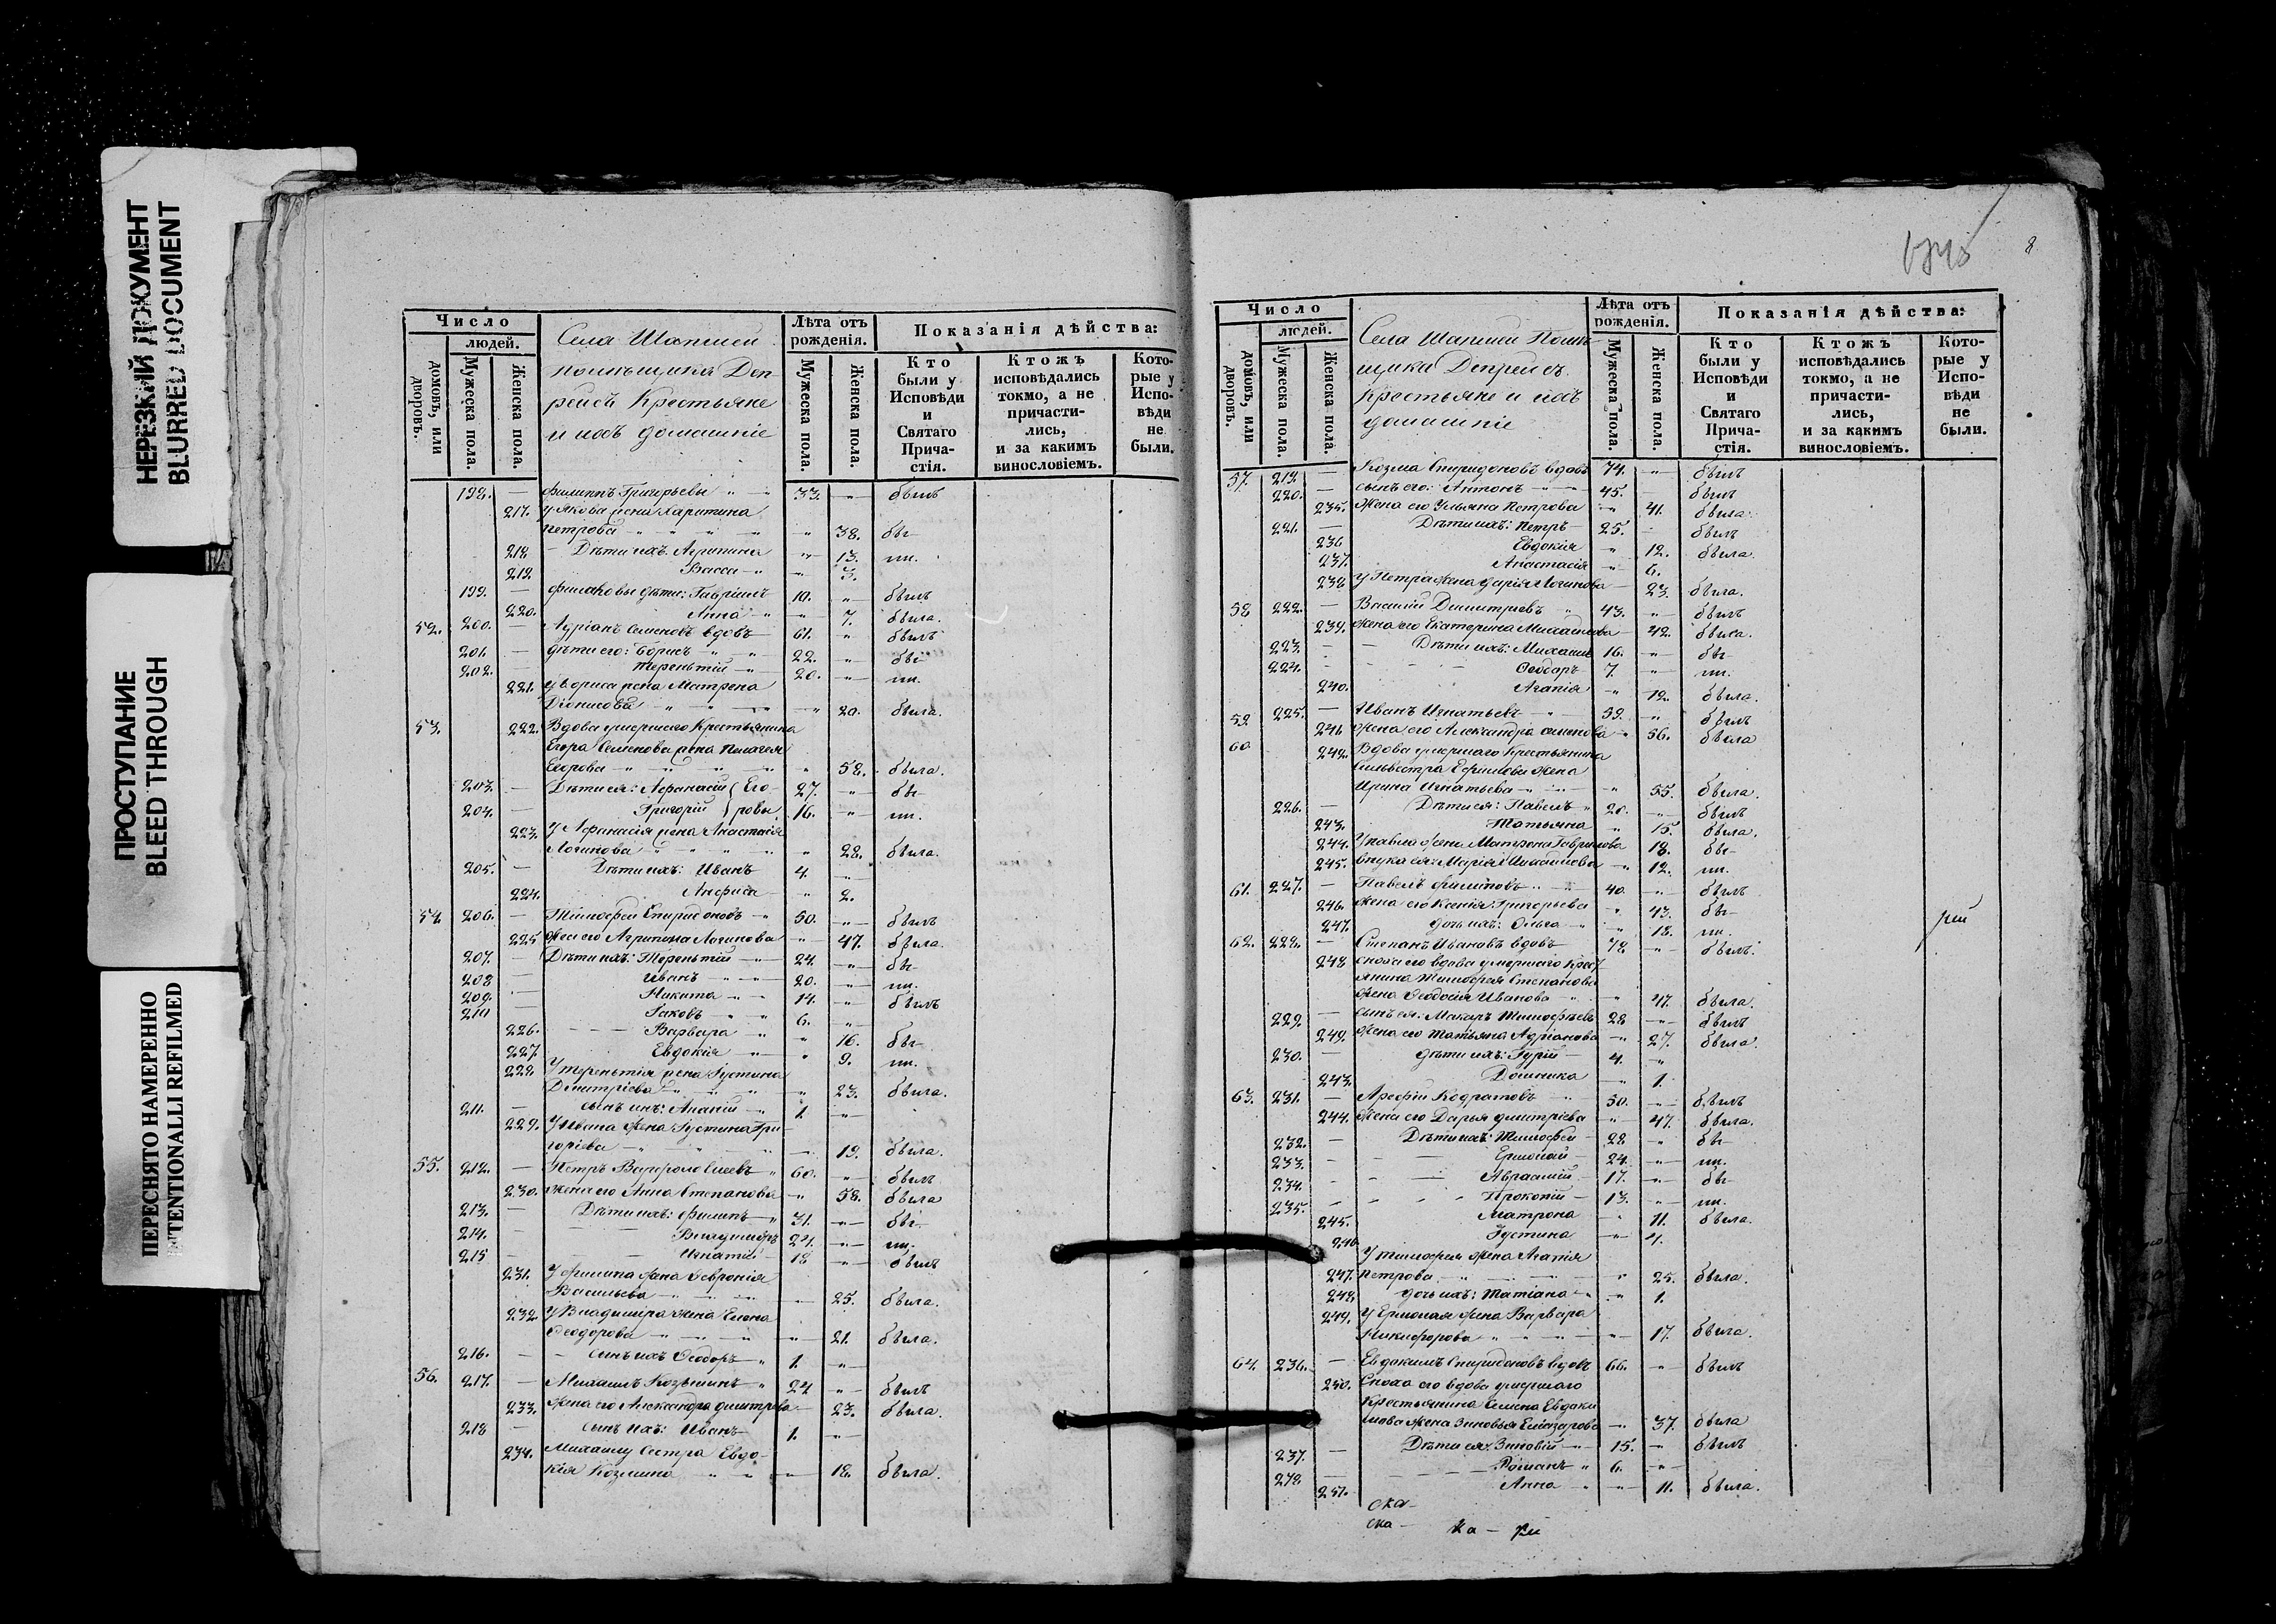 НЕРЕЗКИЙ ДОКУМЕНТ
BLURRED DOCUMENT
ПРОСТУПАНИЕ
BLEED THROUGH
ПЕРЕСНЯТО НАМЕРЕННО
INTENTIONALLI REFILMED
Число
людей.
домовъ, или дворовъ.
Мужеска пола.
Женска пола.
Села Шапкиси
помѣщика Деп
рейсъ Крестьяне
и ихъ домашніе
Лѣта отъ рожденія.
Мужеска пола.
Женска пола.
Показанія дѣйства:
Кто были у Исповѣди и Святаго Прича-стія.
Ктожъ исповѣдались токмо, а не причасти-лись, и за какимъ винословіемъ.
Кото-рые у Испо-вѣди не были.
198. — Филиппъ Григорьевы 33. былъ
217. у Якова жена Харитина
Петрова 38. бы-
218. Дѣти ихъ Агрипина 13. ли.
219. Васса 3.
199. — Филиповы дѣти: Гавріилъ 10. былъ
220. Анна 7. была.
52. 200. — Адріанъ Семеновъ вдовъ 61. былъ
201. — дѣти его: Борисъ 22. бы-
202. Терентій 20. ли.
221. У Бориса жена Матрена
Діонисова 20. была.
53. 222. Вдова умершаго Крестьянина
Егора Семенова жена Пелагея
Егорова 58. была.
203. — Дѣти ея: Афанасій Его- 27. бы-
204. — Григорій ровы 16. ли.
223. У Афанасія жена Анастасія
Логинова 28. была.
205. — Дѣти ихъ: Иванъ 4.
224. Анфиса 2.
54 206. — Тимофей Спиридоновъ 50. былъ
225 Жена его Агрипина Логинова 47. была.
207. — Дѣти ихъ: Терентій 24. бы-
208 — Иванъ 20. ли.
209. — Никита 14. былъ
210 Іаковъ 6.
226. Варвара 16. бы-
227. Евдокія 9. ли.
228. У Терентія жена Іустина
Димитріева 23. была.
211. — сынъ ихъ: Ананій 1.
229. У Ивана жена Іустина Гри-
горіева 19. была.
55. 212. — Петръ Варфоломеевъ 60. былъ
230. Жена его Анна Степанова 58. была
213. — Дѣти ихъ: Филипъ 31. бы-
214. — Владиміръ 24. ли.
215 — Игнатій 18 былъ
231. У Филипа жена Февронія
Васильева 25. была.
232. У Владиміра жена Елена
Феодорова 21. была.
216. — сынъ ихъ Феодоръ 1.
56. 217. — Михаилъ Козьминъ 24 былъ
233. Жена его Александра Димитріева 23. была.
218 — сынъ ихъ: Иванъ 1.
234. Михаилу Сестра Евдо-
кія Козмина 18. была.
8
Число
людей.
домовъ, или дворовъ.
Мужеска пола.
Женска пола.
Села Шапкиси Помѣ-
щика Депрейсъ
Крестьяне и ихъ
домашніе
Лѣта отъ рожденія.
Мужеска пола.
Женска пола.
Показанія дѣйства:
Кто были у Исповѣди и Святаго Прича-стія.
Ктожъ исповѣдались токмо, а не причасти-лись, и за какимъ винословіемъ.
Кото-рые у Испо-вѣди не были.
57. 219. — Козма Спиридоновъ вдовъ 74. былъ
220. — сынъ его: Антонъ 45. былъ
235. Жена его Ульяна Петрова 41. была.
221. — Дѣти ихъ: Петръ 25. былъ
236 Евдокія 12. была.
237. Анастасія 6.
238 У Петра жена Дарія Логинова 23. была.
58 222. — Василій Димитріевъ 43. былъ
239. Жена его Екатерина Михаилова 42. была.
223. Дѣти ихъ: Михаилъ 16. бы-
224. Феодоръ 7. ли.
240. Агапія 12. была.
59 225. — Иванъ Игнатьевъ 59. былъ
241. Жена его Александра 56. была
60 242. Вдова умершаго Крестьянина
Сильвестра Ефимова жена
Ирина Игнатьева 55. была.
226. — Дѣти ея: Павелъ 20. былъ
243. Татьяна 15. была.
244. У Павла жена Матрона Гаврилова 18. бы-
245. внука ея: Марія Михаилова 12. ли.
61. 227. — Павелъ Филиповъ 40. былъ
246. Жена его Ксенія Григорьева 43. бы-
247. дочь ихъ: Ольга 18. ли.
62. 228. — Степанъ Ивановъ вдовъ 78 былъ.
248 сноха его вдова умершаго Крест
янина Тимофея Степанова
жена Феодосія Иванова 47. была.
229. — сынъ ея: Макаръ Тимофѣевъ 28 былъ
249. Жена его Татьяна Адріанова 27. была.
230. — дѣти ихъ: Гурій 4.
243. Домника 1.
63. 231. — Арефій Кодратовъ 50. былъ
244. Жена его Дарья Димитріева 47. была.
232. — Дѣти ихъ: Тимофей 28 бы-
233. Ермолай 24. ли.
234. Авраамій 17. бы-
235. Прокопій 13. ли.
245. Матрона 11. была.
246 Іустина 4.
У Тимофея жена Агапія
247. Петрова 25. была.
248. дочь ихъ: Татіана 1.
249. У Ермолая жена Варвара
Никифорова 17. была.
64. 236. — Евдокимъ Спиридоновъ вдовъ 66. былъ
250. Сноха его вдова умершаго
Крестьянина Семена Евдоки
мова жена Зиновья Елизарова 37. была
237. — Дѣти ея: Зиновій 15. былъ
278. Романъ 6.
251. Анна 11. была.
ска-
ска- ка-